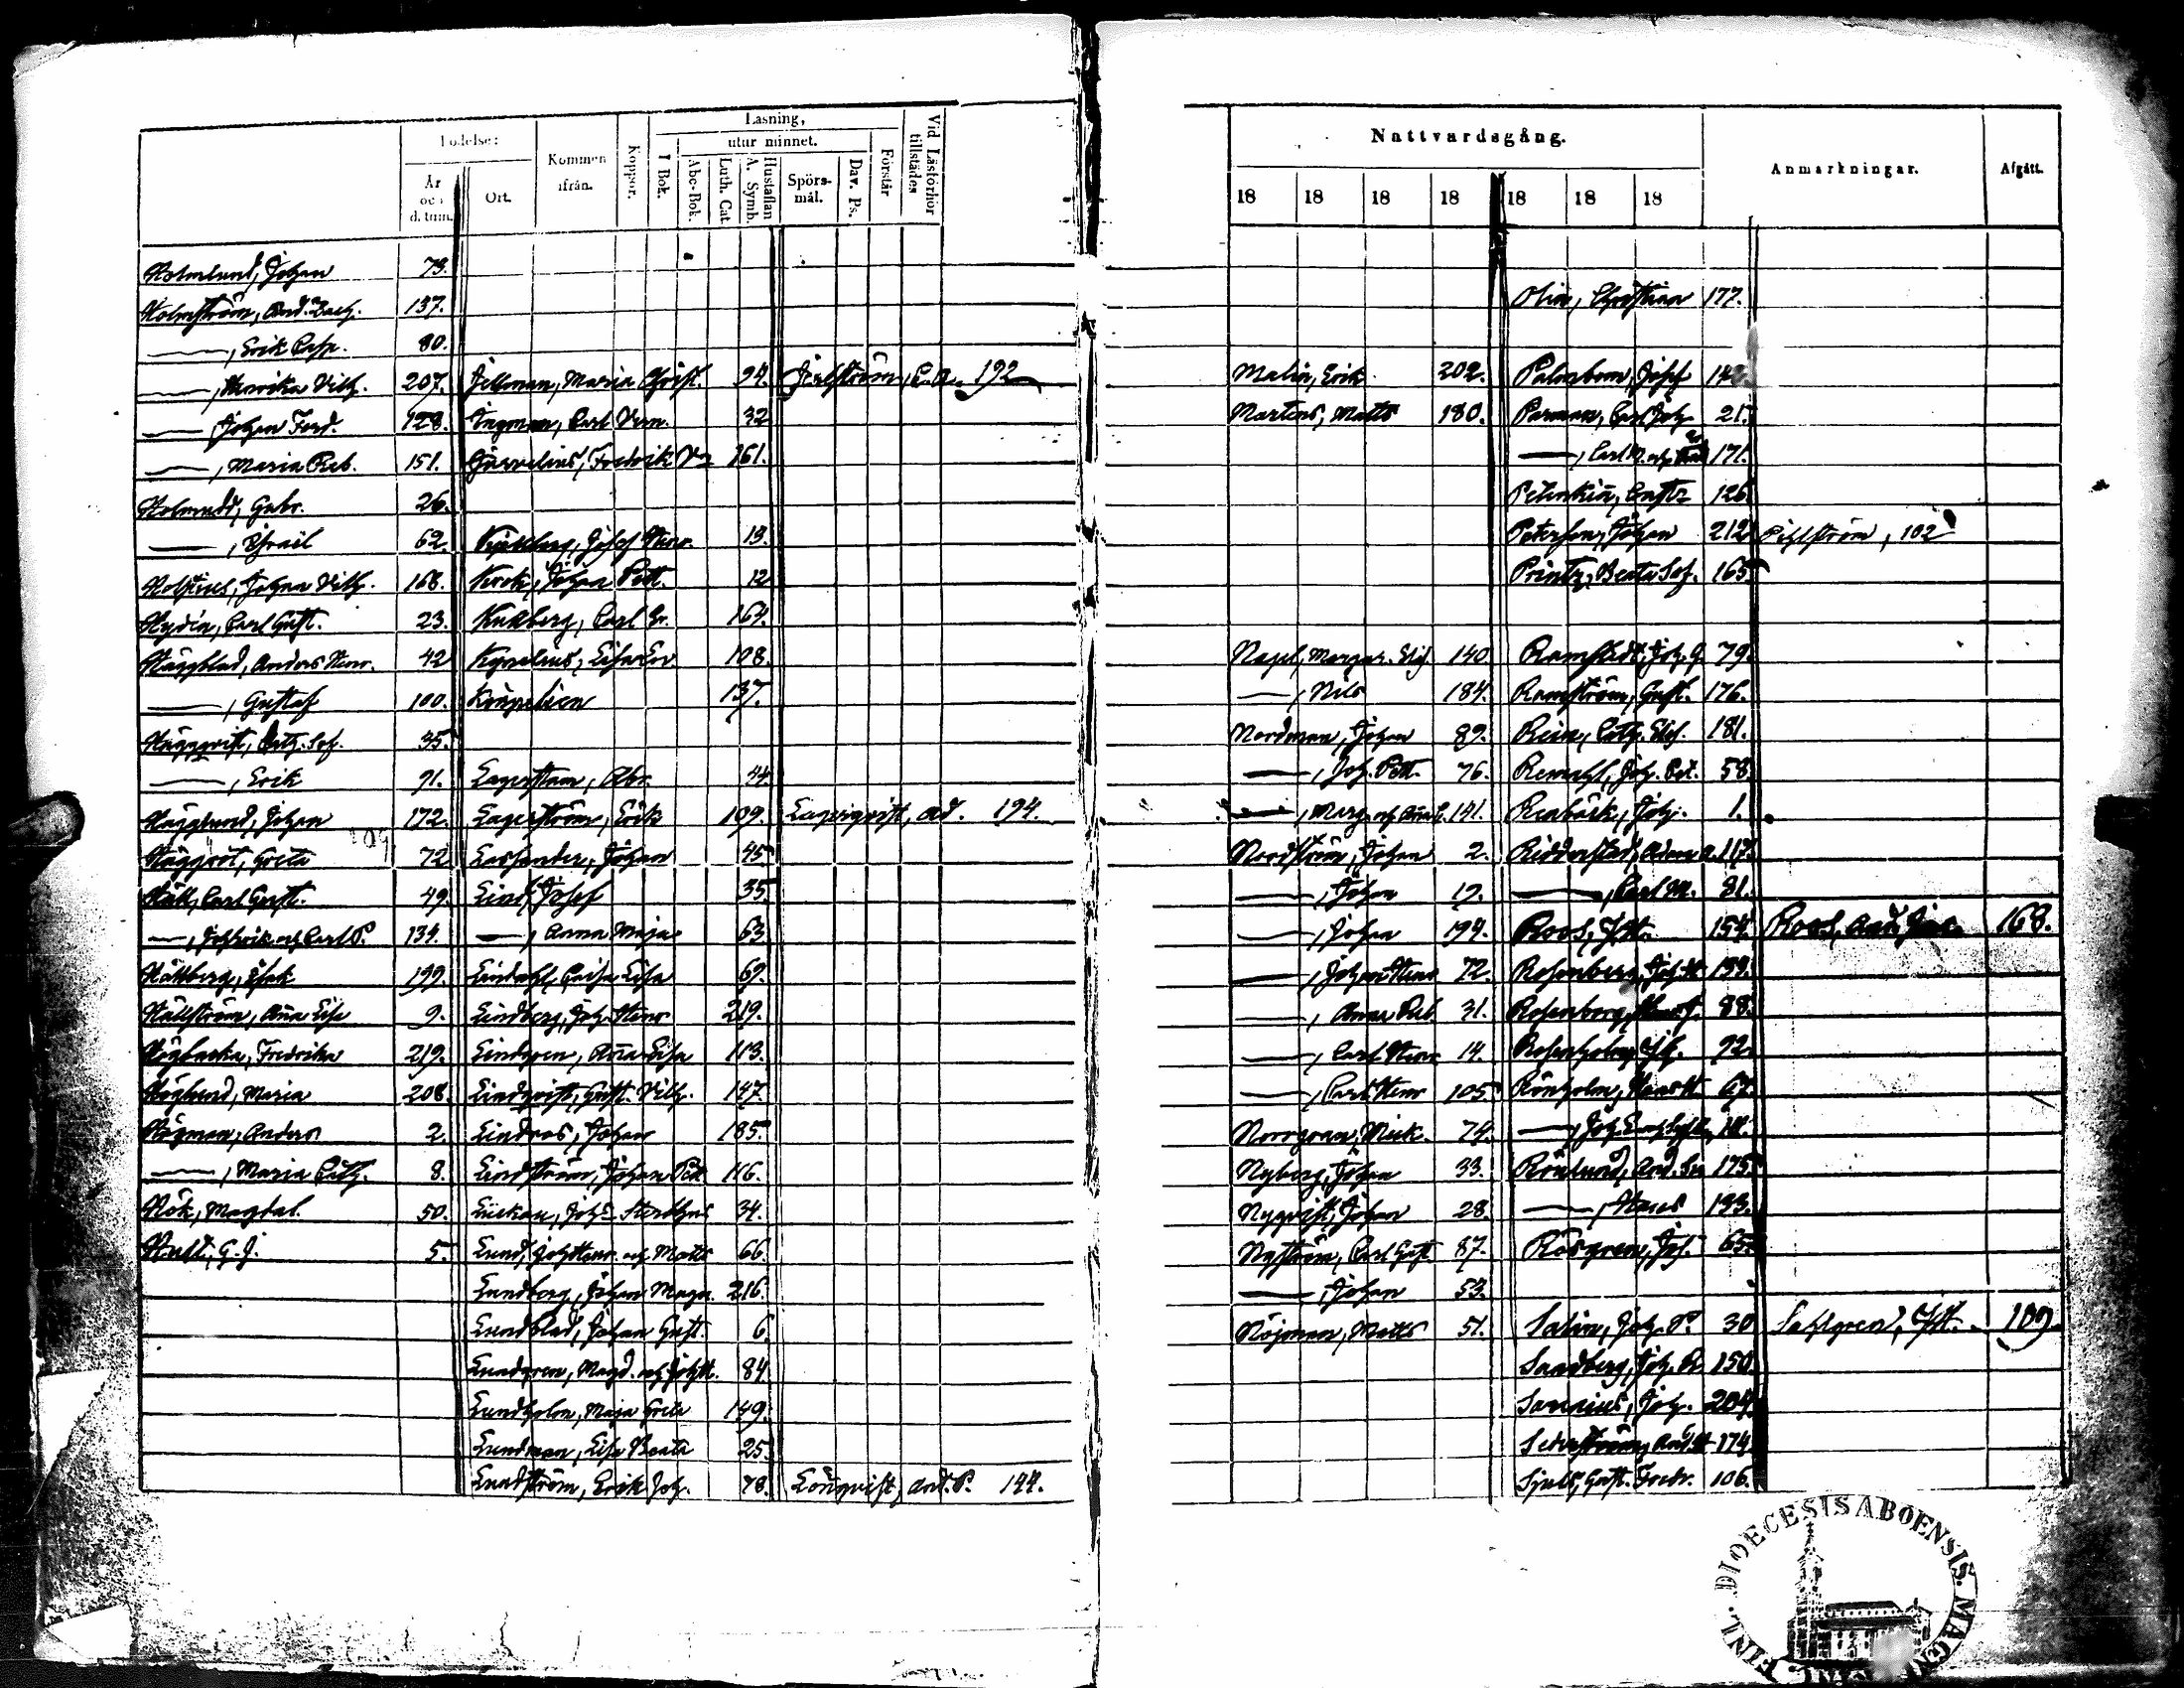 Födelse:
År och d. tum.
Ort.
Kommen ifrån.
Koppor.
Läsning,
utur minnet.
I Bok.
Abc-Bok.
Luth. Cat.
Hustaflan A. Symb.
Spörs-mål.
Dav. Ps.
Förstår
Vid Läsförhör tillstädes
Holmlund, Johan 73.
Holmström, And. Zach. 137.
—, Erik Casp. 80.
—, Henrika Vilh. 207.
—, Johan Ferd. 128.
—, Maria Reb. 151.
Holmudd, Gabr. 26.
—, Israil 62.
Holsius, Johan Vilh. 168.
Hydén, Carl Gust. 23.
Häggblad, Anders Henr. 42
—, Gustaf 100.
Häggqvist, Cath. Sof. 35.
—, Erik 91.
Hägglund, Johan 172.
Häggrot, Greta 72
Häll, Carl Gust. 49.
—, Fredrik och Carl P. 134.
Hällberg, Isak 199.
Hällström, Anna Lisa 9.
Högbacka, Fredrika 219.
Höglund, Maria 208.
Högman, Anders 2.
—, Maria Cath. 8.
Hök, Magdal. 50.
G. J. 5.
Jellman, Maria Christ. 94.
Ingman, Carl Herm. 32
Järvelius, Fredrik 161.
Josef Henr. 13.
Korck, Johan Pett. 12
Kullberg, Carl Er. 164.
Lisa Lov. 108.
137.
Lagerstam, Abr. 44.
Lagerström, Erik 109.
Lassander, Johan 45
Lind, Josef 35
—, Anna Maja 63
Lindahl, Cajsa Lisa 69.
Lindberg, Joh. Henr. 219.
Lindgren, Anna Lisa 113.
Lindqvist, Gust. Vilh. 147.
Lindros, Johan 185.
Lindström, Johan Pett. 116.
34.
Lund, Joh. Henr. och Matts 66
Lundberg, Johan Magn. 216.
Lundblad, Johan Gust. 6
Lundgren, Magd. och Joh. H. 84
Lundholm, Maja Greta 149.
Lundman, Lisa Beata 25
Lundström, Erik Joh. 78.
Jerlström, C. A. 192
Lagerqvist, Ad. 194.
Lönqvist, And. P. 144.
Nattvardsgång.
18 18 18 18 18 18 18
Anmärkningar.
Afgått.
Malin, Erik 202.
Martens, Matts 180.
Nagel, Margar. Elis. 140
—, Nils 184.
Nordman, Johan 89.
—, Joh. Pett. 76.
—, Marg. och Anna C. 141.
Nordström, Johan 2.
—, Johan 19.
—, Johan 194.
—, Johan Henr. 72.
—, Anna Reb. 31.
—, Carl Henr. 14.
—, Carl Henr 105
Norrgran, Mick. 74.
Nyberg, Johan 33.
Nyqvist, Johan 28.
Nyström, Carl Gust. 87.
—, Johan 53.
Nöjman, Matts 51.
Olin, Christian 177.
Palmbom, Josef 142.
Parman, Carl Joh. 21.
—, Carl M. och 171.
126.
Peterson, Johan 212
Printz, Beata Sof. 165
Ramstedt, Joh. G. 79.
Ramström, Gust. 176.
Rein, Cath. Elis. 181.
Remahl, Joh. Pet. 58
Renbäck, Joh. 1.
Ridderstad, Adam A. 117.
—, Carl M. 81.
Roos, 154.
Rosenberg, Joh. H. 139.
Rosenberg, 88.
Rosenholm, 92.
Rönholm, 67.
—, Joh.
Rönlund, And. 175
—, Hans 193.
Rösgren, Jos. 65.
Salin, Joh. P. 30
Sandberg, Joh. R. 150.
Joh. 204.
Sederström, And. H. 174
Gust. Fredr. 106.
Pihlström, 102
Roos, And. 168.
Sahlgren, 109
FINL. DIOECESIS ABOENSIS. MAGNI